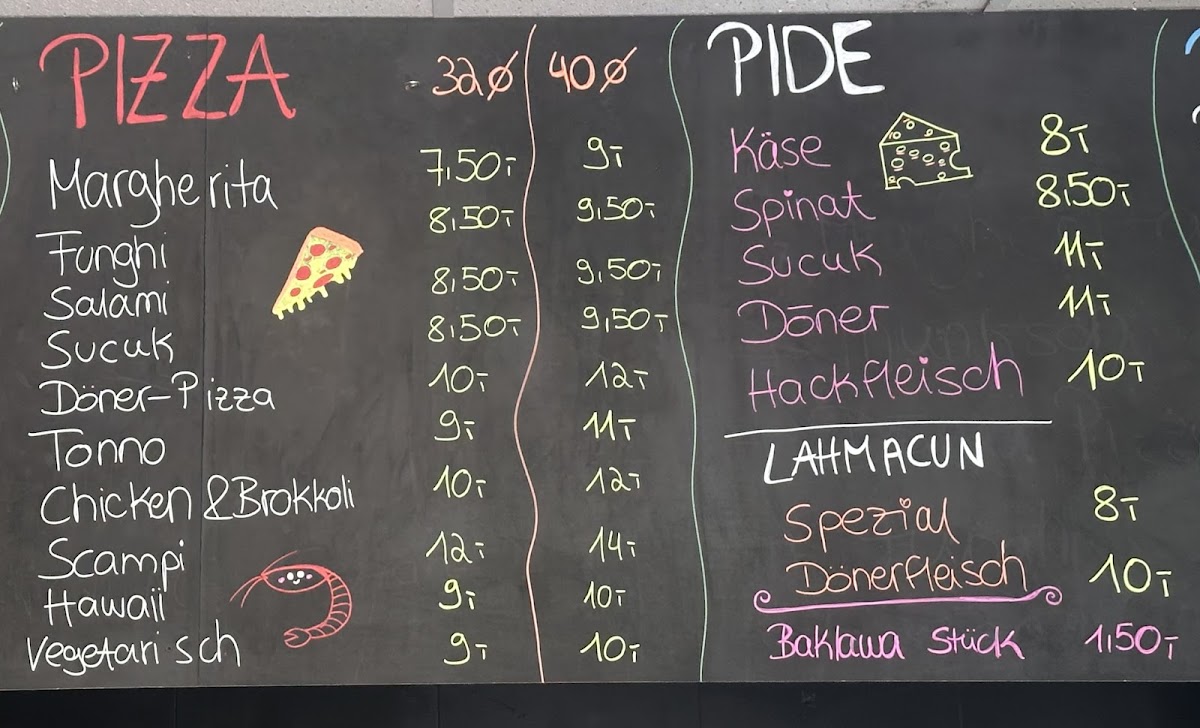 PIZZA 32ø 40ø
Margherita 7,50- 9-
Funghi 8,50- 9,50-
Salami 8,50- 9,50-
Sucuk 8,50- 9,50-
Döner-Pizza 10- 12-
Tonno 9- 11-
Chicken & Brokkoli 10- 12-
Scampi 12- 14-
Hawaii 9- 10-
Vegetarisch 9- 10-
PIDE
Käse 8-
Spinat 8,50-
Sucuk 11-
Döner 11-
Hackfleisch 10-
LAHMACUN
Spezial 8-
Dönerfleisch 10-
Baklawa Stück 1,50-